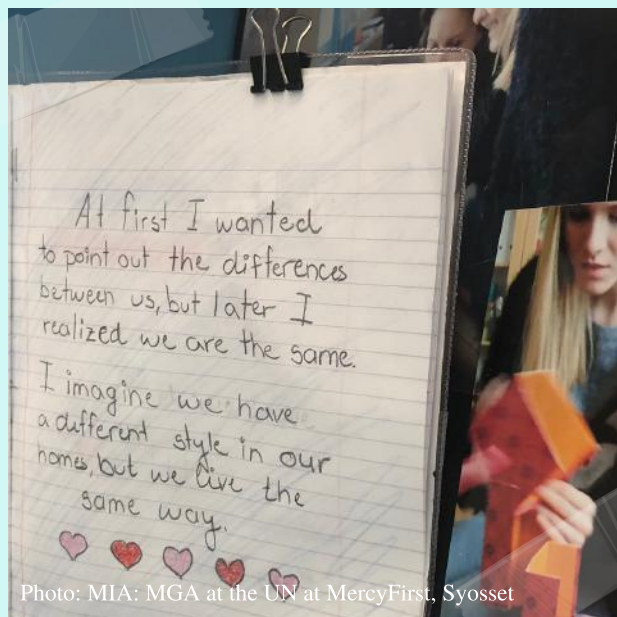 At first I wanted
to point out the differences
between us, but later I
realized we are the same.
I imagine we have
a different style in our
homes, but we live the
same way.
Photo: MIA: MGA at the UN at MercyFirst, Syosset